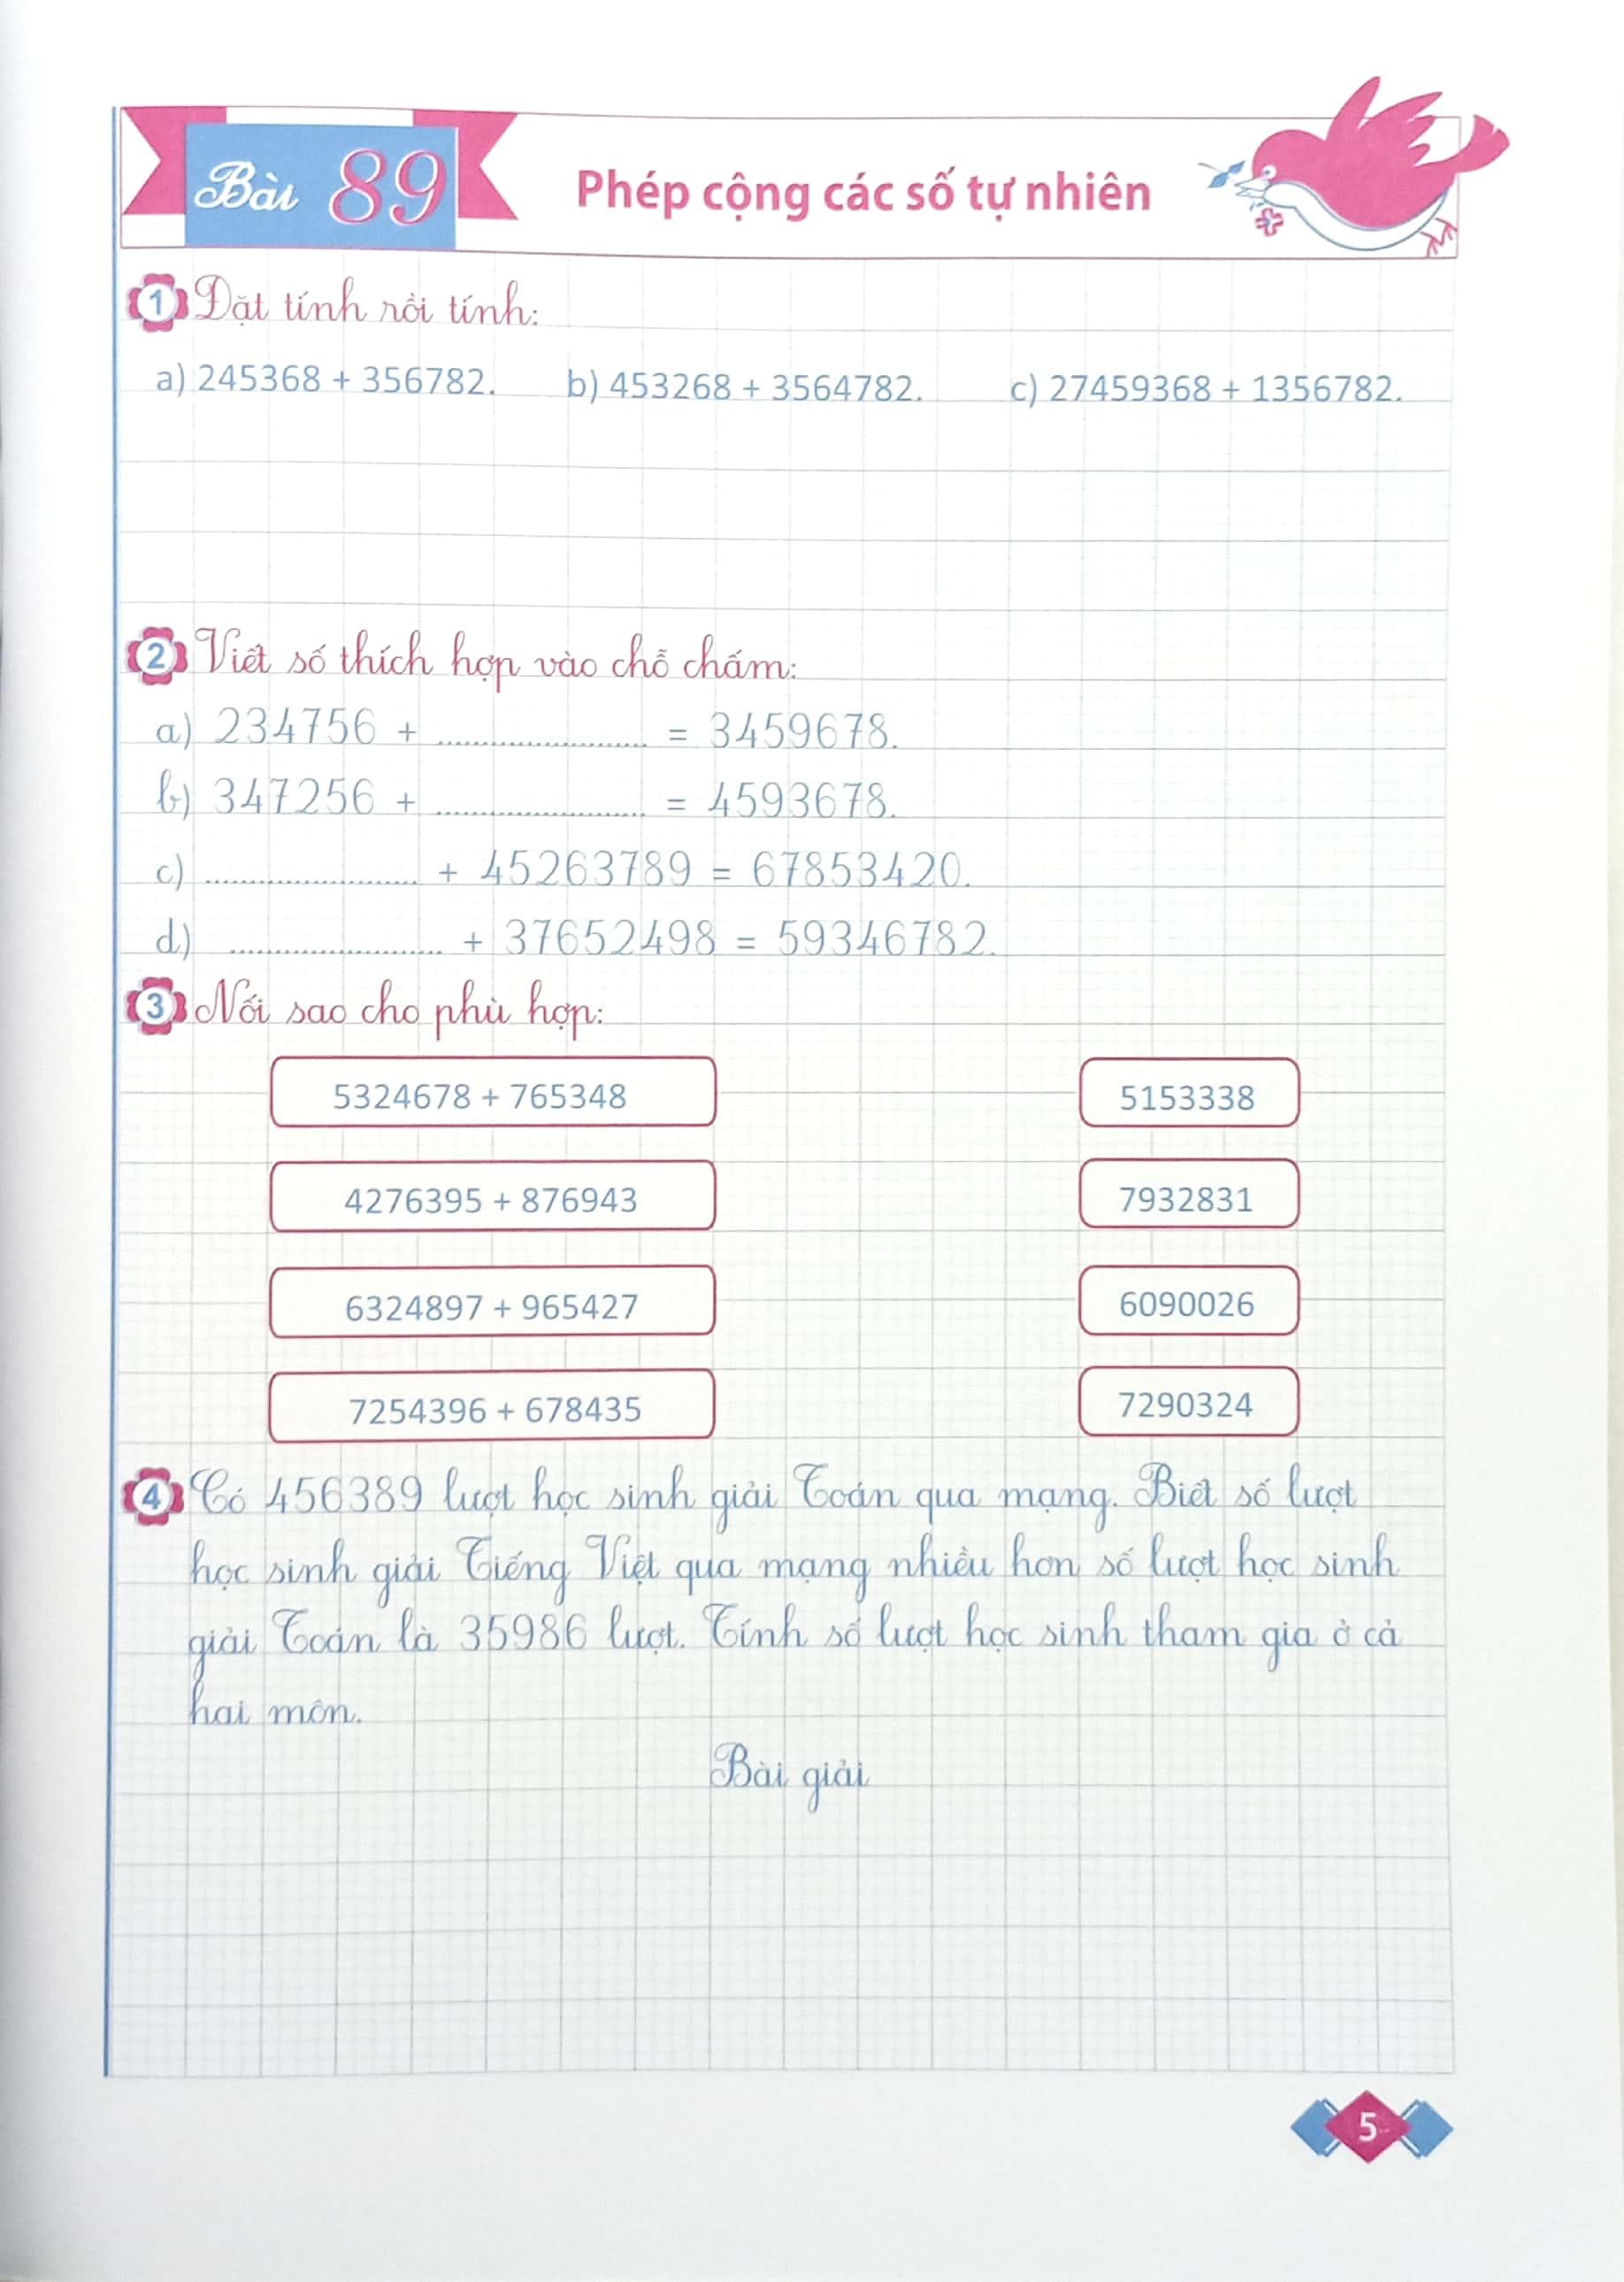 Bài 89
Phép cộng các số tự nhiên
1 Đặt tính rồi tính:
a) 245368 + 356782. b) 453268 + 3564782. c) 27459368 + 1356782.
2 Viết số thích hợp vào chỗ chấm:
a) 234756 + ..................... = 3459678.
b) 347256 + ..................... = 4593678.
c) ..................... + 45263789 = 67853420.
d) ..................... + 37652498 = 59346782.
3 Nối sao cho phù hợp:
5324678 + 765348 5153338
4276395 + 876943 7932831
6324897 + 965427 6090026
7254396 + 678435 7290324
4 Có 456389 lượt học sinh giải Toán qua mạng. Biết số lượt
học sinh giải Tiếng Việt qua mạng nhiều hơn số lượt học sinh
giải Toán là 35986 lượt. Tính số lượt học sinh tham gia ở cả
hai môn.
Bài giải
5